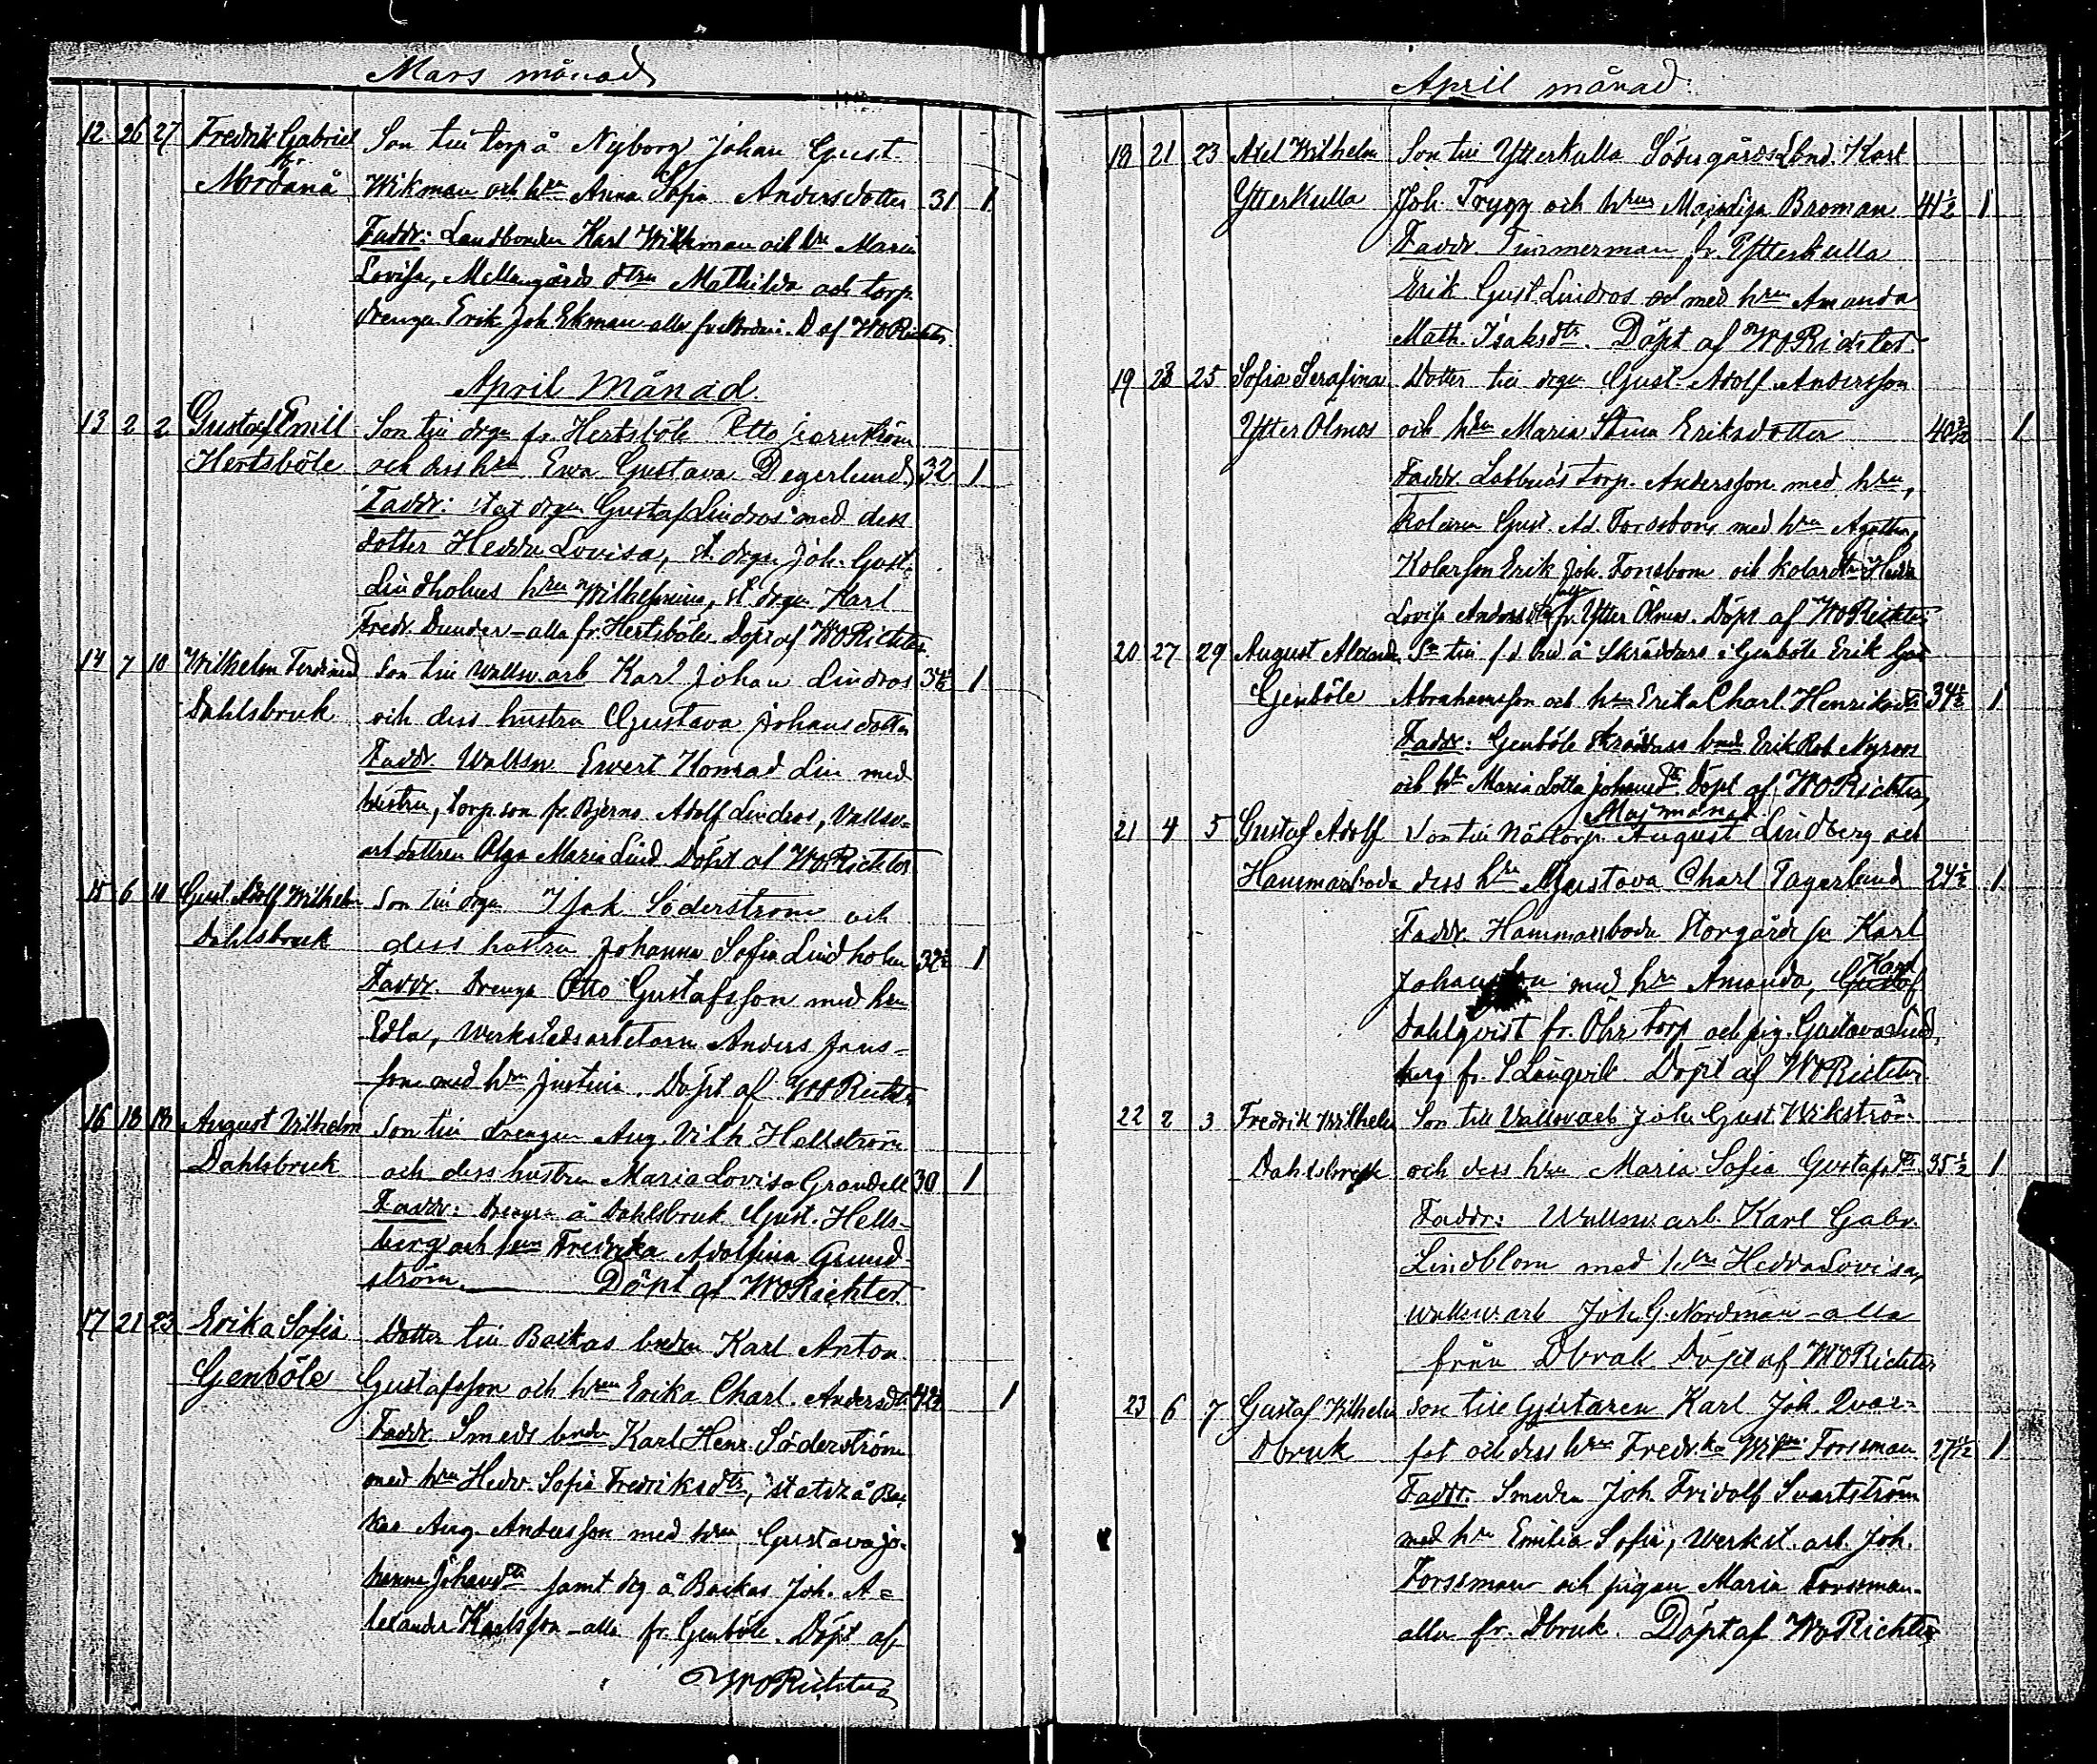 Mars månad
12 26 27 Fredrik Gabriel Son till torp å Nyborg Johan Gust.
Nordanå Wikman och hru Anna Sofia Andersdotter 31 1
Faddr: Landbonden Karl Wikman och hru Maria
Lovisa, Mellangårds dtrn Mathilda och torp.
drengen Erik Joh. Ekman alla fr. D af WORichter
April Månad
13 2 2 Gustaf Emill Son till drgn fr. Hertsböle Otto
Hertsböle och dess hru Ewa Gustava Degerlund 32 1
Faddr: Stat drgn Gustaf Lindros med dess
dotter Hedda Lovisa, st. drgn Joh. Gust.
Lindholms hru Wilhelmina, st. drgn Karl
Fredr. Dunder - alla fr. Hertsböle. Döpt af WORichter
14 7 10 Wilhelm Ferdinand Son till Wallsv. arb Karl Johan Lindros 34 1
Dahlsbruk och dess hustru Gustava Johansdotter
Faddr. Wallsv Ewert Konrad Lin med
hustru, torp. son fr. Bjernо Adolf Lindros, Vallsv-
arb dottren Olga Maria Lind. Döpt af WORichter
15 6 10 Gust. Adolf Wilhelm Son till drgn Isak Söderström och
Dahlsbruk dess hustru Johanna Sofia Lindholm 32 1
Faddr. Drengn Otto Gustafsson med hru
Edla, Werkstedsarbetaren Anders Jans-
son med hru Justina. Döpt af WORichter
16 18 18 August Vilhelm Son till drengen Aug. Vilh. Hellström
Dahlsbruk och dess hustru Maria Lovisa Grandell 30 1
Faddr: Drengen å Dahlsbruk Gust. Hells-
berg och hru Fredrika Adolfina Grund-
ström. Döpt af WORichter
17 21 23 Erika Sofia Dotter till Backas bonden Karl Anton
Genböle Gustafsson och hru Erika Charl. Andersdtr 42 1
Faddr. Smeds bonden Karl Henr. Söderström
med hru Hedv. Sofia Fredriksdtr, statdr å Bac
kas Aug. Andersson med hru Gustava Jo-
hanna Johansdtr samt drg å Backas Joh. A=
lexander Karlsson - alla fr. Genböle. Döpt af
WORichter
April månad.
18 21 23 Axel Wilhelm Son till Ytterkulla Södergårds Lbnd. Karl
Ytterkulla Joh. Trygg och hrus Maja Lisa Broman 41½ 1
Faddr. Timmerman fr. Ytterkulla
Erik Gust Lindros och med hru Amanda
Math. Isaksdtr. Döpt af WORichter.
19 23 25 Sofia Serafina Dotter till drgn Gust. Adolf Andersson
Ytter Ölmos och hru Maria Stina Eriksdotter 40 1
Faddr. Labbnäs torp. Andersson med hru,
Kolaren Gust. Ad. Forsbom med hru Agatha,
Kolarson Erik Joh. Forsbom och kolardtrn Hedda
Lovisa Andersdtr alla fr. Ytter Ölmos. Döpt af WORichter
20 27 29 August Alexander Sn till f d bnd å Skräddars i Genböle Erik
Genböle Abrahamsson och hru Erika Charl. Henriksdtr 34½ 1
Faddr: Genböle Skräddars bnd Erik Rob Nyroos
och hru Maria Lotta Johansdtr. Döpt af WORichter,
Maj månad
21 4 5 Gustaf Adolf Son till Nästorp August Lindberg och
Hammarboda dess hru Gustava Charl Fagerlund 24½ 1
Faddr. Hammarboda Storgårds Karl
Johansson med hru Amanda, Karl
Dahlqvist fr. torp och pig. Gustava Lind,
berg fr. S Långvik. Döpt af WORichter
22 2 3 Fredrik Wilhelm Son till Vallsvarb Joh. Gust. Wikström
Dahlsbruk och dess hru Maria Sofia Gustafsdtr 35½ 1
Faddr: Wallsv. arb. Karl Gabr.
Lindblom med hru Hedda Lovisa,
wallsv. arb Joh. G. Nordman - alla
från Dbruk Döpt af WORichter
23 6 7 Gustaf Wilhelm Son till Gjutaren Karl Joh. Qvar=
Dbruk fot och dess hru Fredr.ka Forssman 27 1
Faddr. Smeden Joh. Fridolf Svartström
med hru Emilia Sofia, Werkst. arb. Joh.
Forssman och pigan Maria Forssman
alla fr. Dbruk. Döpt af WORichter